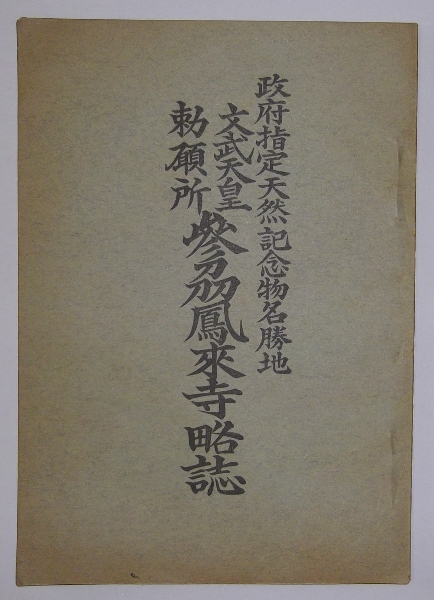 政府指定天然記念物名勝地
文武天皇
勅願所
参刕鳳来寺略誌